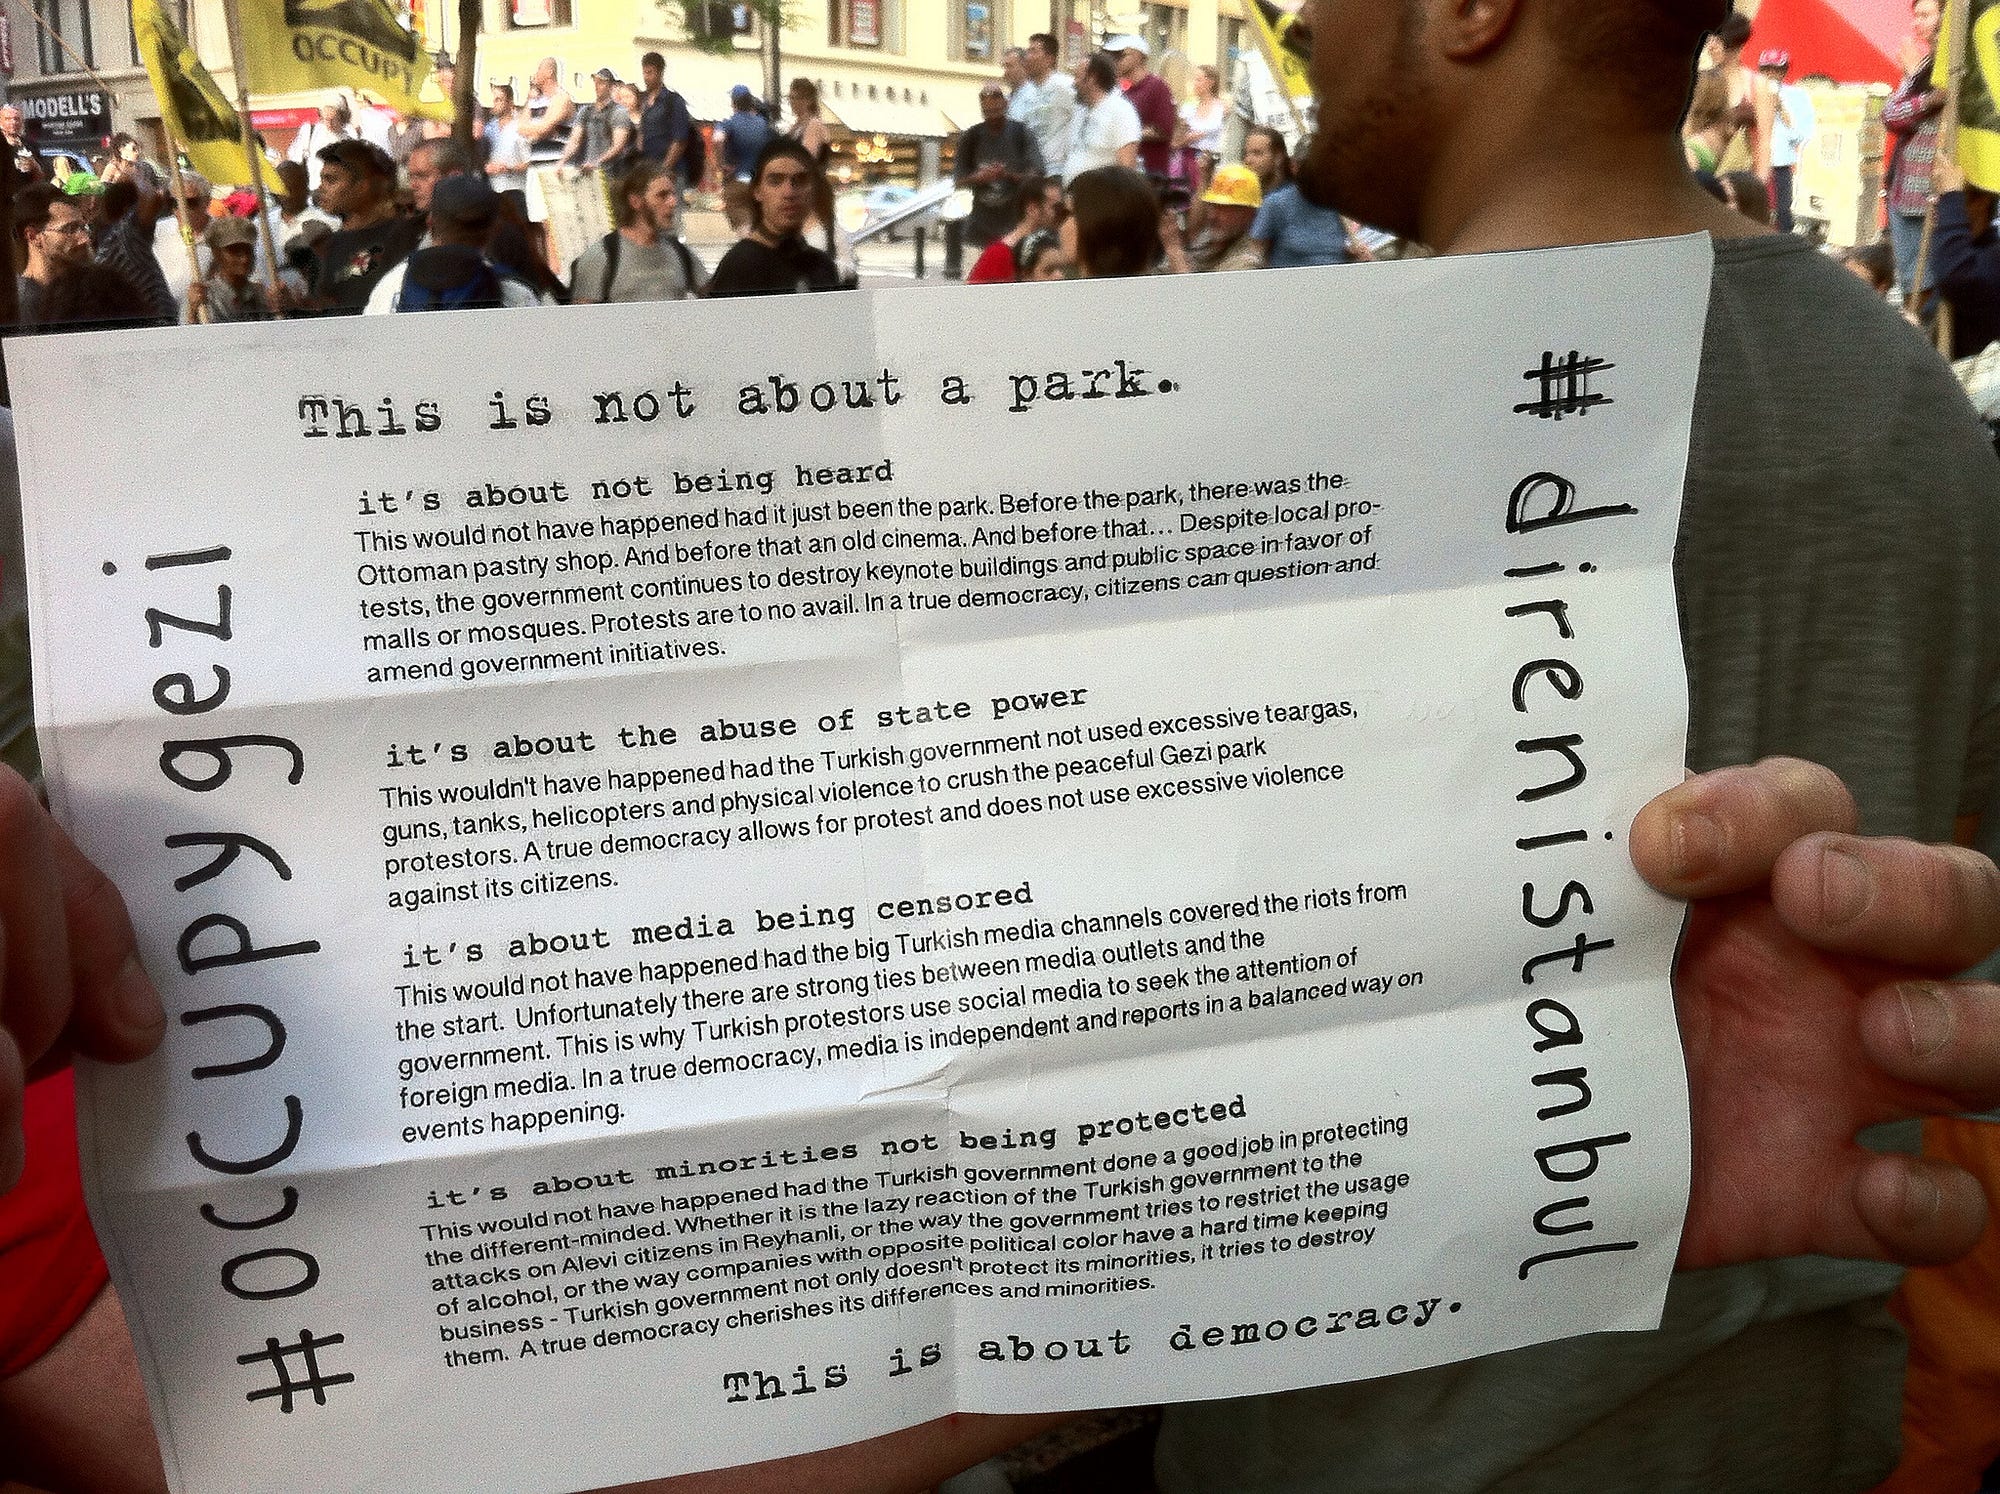 MODELL'S
OCCUPY
#occupygezi
This is not about a park.
it's about not being heard
This would not have happened had it just been the park. Before the park, there was the
Ottoman pastry shop. And before that an old cinema. And before that... Despite local pro-
tests, the government continues to destroy keynote buildings and public space in favor of
malls or mosques. Protests are to no avail. In a true democracy, citizens can question and
amend government initiatives.
it's about the abuse of state power
This wouldn't have happened had the Turkish government not used excessive teargas,
guns, tanks, helicopters and physical violence to crush the peaceful Gezi park
protestors. A true democracy allows for protest and does not use excessive violence
against its citizens.
it's about media being censored
This would not have happened had the big Turkish media channels covered the riots from
the start. Unfortunately there are strong ties between media outlets and the
government. This is why Turkish protestors use social media to seek the attention of
foreign media. In a true democracy, media is independent and reports in a balanced way on
events happening.
it's about minorities not being protected
This would not have happened had the Turkish government done a good job in protecting
the different-minded. Whether it is the lazy reaction of the Turkish government to the
attacks on Alevi citizens in Reyhanli, or the way the government tries to restrict the usage
of alcohol, or the way companies with opposite political color have a hard time keeping
business - Turkish government not only doesn't protect its minorities, it tries to destroy
them. A true democracy cherishes its differences and minorities.
This is about democracy.
#direnistanbul